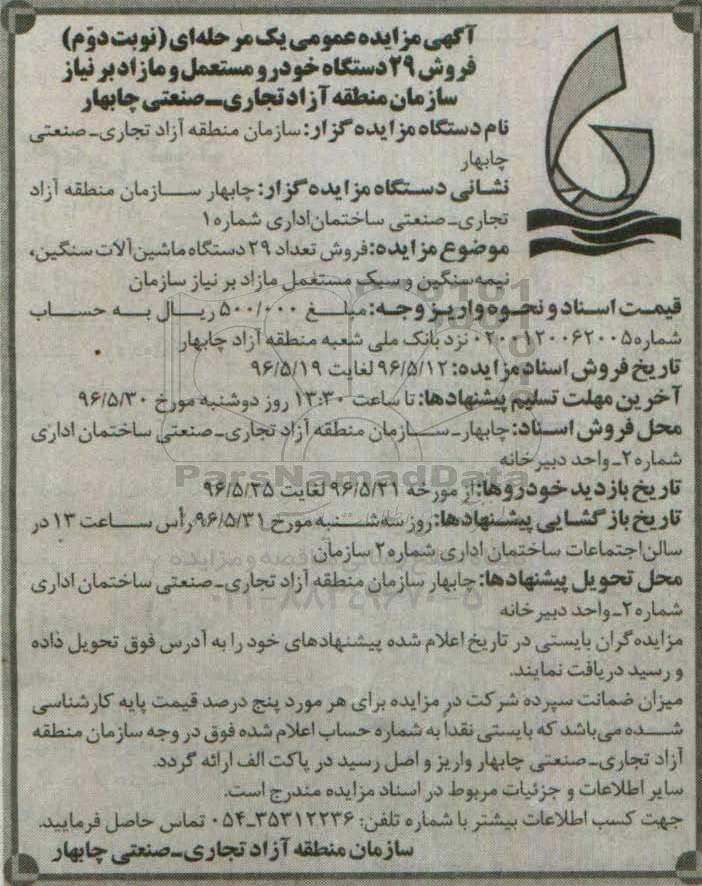 آگهی مزایده عمومی یک مرحله‌ای (نوبت دوّم)
فروش ۲۹ دستگاه خودرو مستعمل و مازاد بر نیاز
سازمان منطقه آزاد تجاری-صنعتی چابهار
نام دستگاه مزایده گزار: سازمان منطقه آزاد تجاری-صنعتی
چابهار
نشانی دستگاه مزایده گزار: چابهار سازمان منطقه آزاد
تجاری-صنعتی ساختمان اداری شماره ۱
موضوع مزایده: فروش تعداد ۲۹ دستگاه ماشین آلات سنگین،
نیمه سنگین و سبک مستعمل مازاد بر نیاز سازمان
قیمت اسناد و نحوه واریز وجه: مبلغ ۵۰۰/۰۰۰ ریال به حساب
شماره ۰۲۰۰۱۲۰۰۶۲۰۰۵ نزد بانک ملی شعبه منطقه آزاد چابهار
تاریخ فروش اسناد مزایده: ۹۶/۵/۱۲ لغایت ۹۶/۵/۱۹
آخرین مهلت تسلیم پیشنهادها: تا ساعت ۱۳:۳۰ روز دوشنبه مورخ ۹۶/۵/۳۰
محل فروش اسناد: چابهار-سازمان منطقه آزاد تجاری-صنعتی ساختمان اداری
شماره ۲-واحد دبیرخانه
تاریخ بازدید خودروها: از مورخه ۹۶/۵/۲۱ لغایت ۹۶/۵/۲۵
تاریخ بازگشایی پیشنهادها: روز سه شنبه مورخ ۹۶/۵/۳۱ رأس ساعت ۱۳ در
سالن اجتماعات ساختمان اداری شماره ۲ سازمان
محل تحویل پیشنهادها: چابهار سازمان منطقه آزاد تجاری-صنعتی ساختمان اداری
شماره ۲-واحد دبیرخانه
مزایده گران بایستی در تاریخ اعلام شده پیشنهادهای خود را به آدرس فوق تحویل داده
و رسید دریافت نمایند.
میزان ضمانت سپرده شرکت در مزایده برای هر مورد پنج درصد قیمت پایه کارشناسی
شده می‌باشد که بایستی نقداً به شماره حساب اعلام شده فوق در وجه سازمان منطقه
آزاد تجاری-صنعتی چابهار واریز و اصل رسید در پاکت الف ارائه گردد.
سایر اطلاعات و جزئیات مربوط در اسناد مزایده مندرج است.
جهت کسب اطلاعات بیشتر با شماره تلفن: ۳۵۳۱۲۲۳۶-۰۵۴ تماس حاصل فرمایید.
سازمان منطقه آزاد تجاری-صنعتی چابهار
ParsNamadData